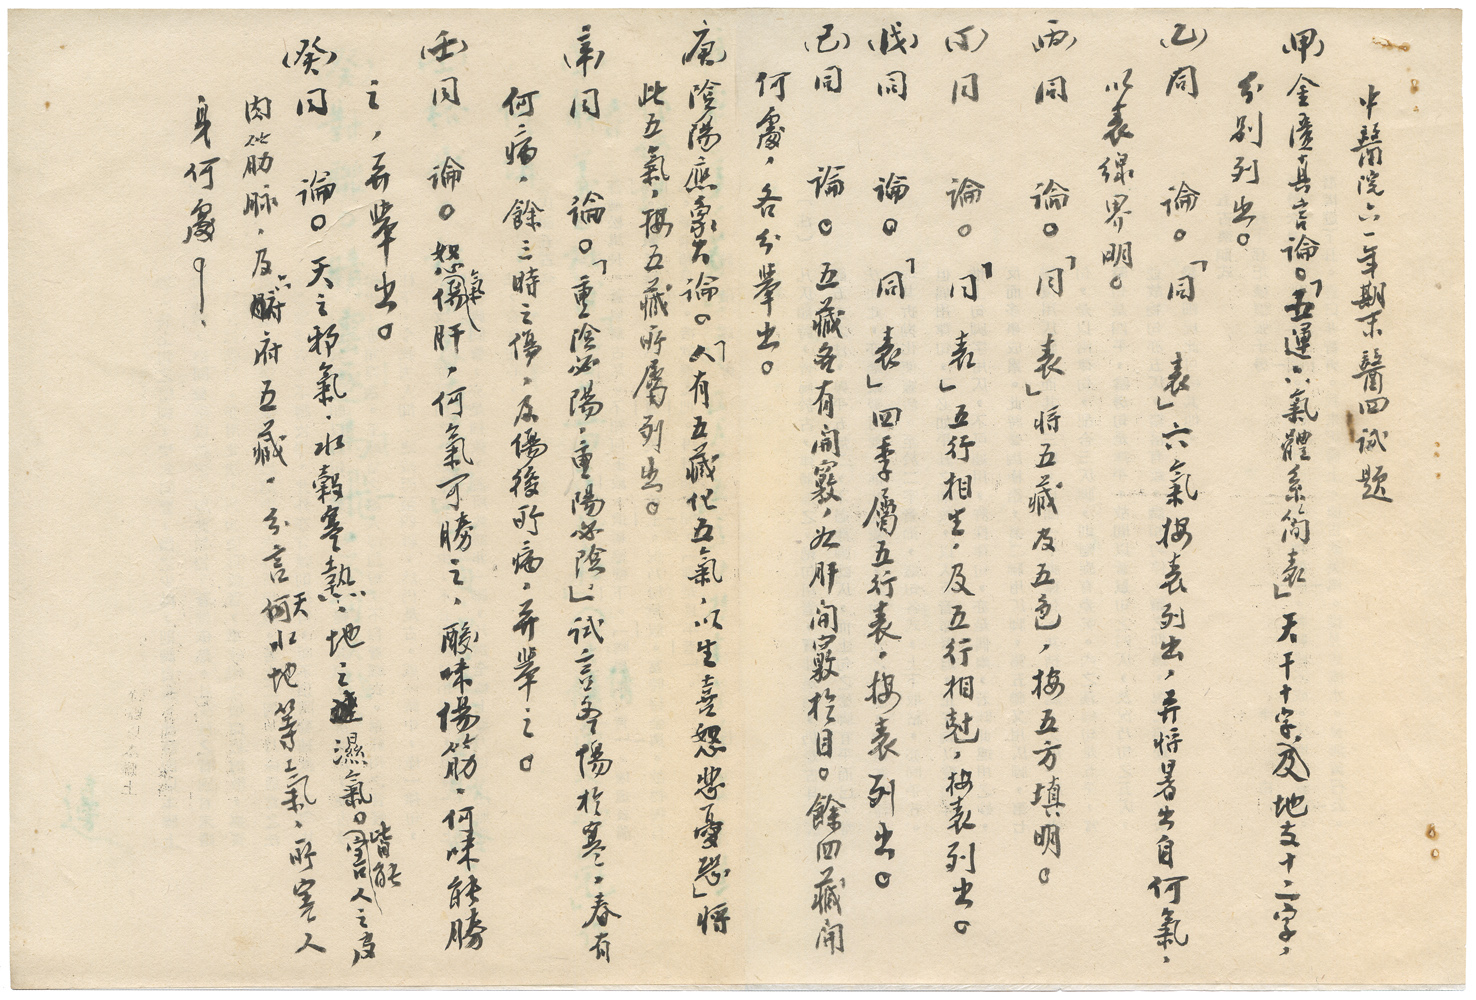 中醫院六一年期末醫四試題
(甲)金匱真言論。「五運六氣體系簡表」天干十字,及地支十二字,
分別列出。
(乙)同 論。「同 表」六氣按表列出,弄將暑出自何氣,
以表線界明。
(丙)同 論。「同 表」將五藏及五色,按五方填明。
(丁)同 論。「同 表」五行相生,及五行相尅,按表列出。
(戊)同 論。「同 表」四季屬五行表,按表列出。
(己)同 論。五藏各有開竅,如肝開竅於目。餘四藏開
何處,各分舉出。
(庚)陰陽應象大論。「人有五藏化五氣,以生喜怒悲憂恐」將
此五氣,按五藏所屬列出。
(辛)同 論。「重陰必陽,重陽必陰」試言冬傷於寒,春有
何病,餘三時之傷,及傷後所病,弄舉之。
(壬)同 論。怒氣傷肝,何氣可勝之,酸味傷筋,何味能勝
之,弄舉出。
(癸)同 論。天之邪氣,水穀寒熱,地之濕氣。皆能害人之皮
肉筋脉,及六府五藏,分言天水地等氣,所害人
身何處?